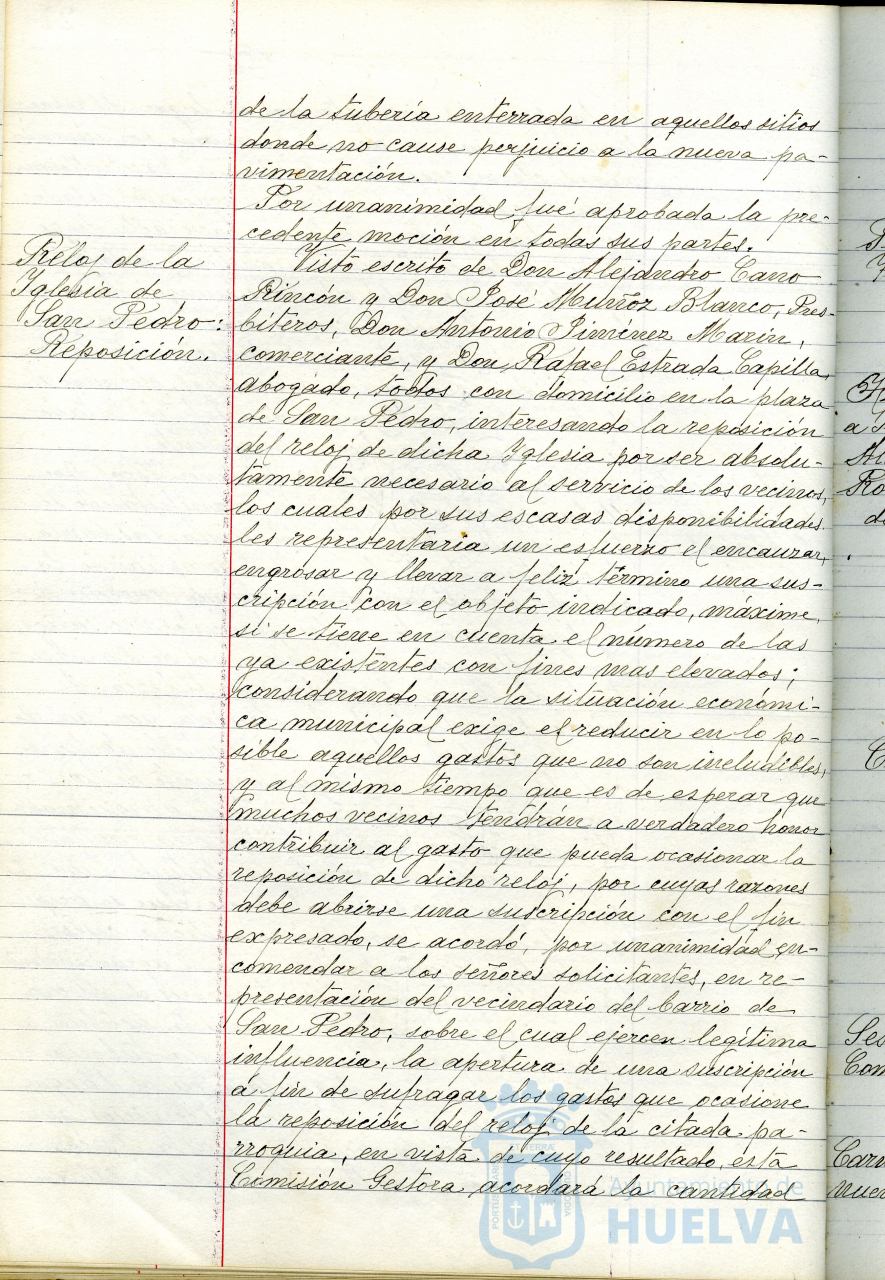 de la tubería enterrada en aquellos sitios
donde no cause perjuicio a la nueva pa-
vimentación.
Por unanimidad fué aprobada la pre-
cedente moción en todas sus partes.
Reloj de la
Iglesia de
San Pedro:
Reposición.
Visto escrito de Don Alejandro Cano
Rincón y Don José Muñoz Blanco, Pres-
bíteros, Don Antonio Jiménez Marin,
comerciante, y Don Rafael Estrada Capilla,
abogado, todos con domicilio en la plaza
de San Pedro, interesando la reposición
del reloj de dicha Iglesia por ser absolu-
tamente necesario al servicio de los vecinos,
los cuales por sus escasas disponibilidades
les representaria un esfuerzo el encauzar,
engrosar y llevar a feliz término una sus-
cripción con el objeto indicado, máxime,
si se tiene en cuenta el número de las
ya existentes con fines mas elevados;
considerando que la situación económi-
ca municipal exige el reducir en lo po-
sible aquellos gastos que no son ineludibles,
y al mismo tiempo que es de esperar que
muchos vecinos tendrán a verdadero honor
contribuir al gasto que pueda ocasionar la
reposición de dicho reloj, por cuyas razones
debe abrirse una suscripción con el fin
expresado, se acordó, por unanimidad en-
comendar a los señores solicitantes, en re-
presentación del vecindario del barrio de
San Pedro, sobre el cual ejercen legítima
influencia, la apertura de una suscripción
a fin de sufragar los gastos que ocasione
la reposición del reloj de la citada pa-
rroquia, en vista de cuyo resultado, ésta
Comisión Gestora acordará la cantidad
Ayuntamiento de
HUELVA